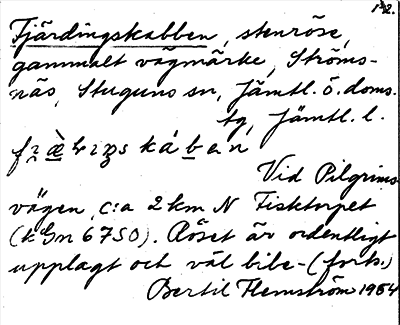 132.
Fjärdingskabben, stenröse,
gammalt vägmärke, Ströms-
näs, Stuguns sn, Jämtl. ö. doms.
tg, Jämtl. l.
kában
Vid Pilgrims-
vägen, c:a 2 km N Fisktorpet
(kgn 6750). Röset är ordentligt
upplagt och väl bibe- (forts.)
Bertil Flemström 1954